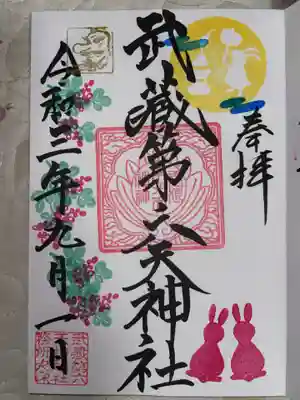 奉拝
武蔵第六天神社
令和三年九月一日